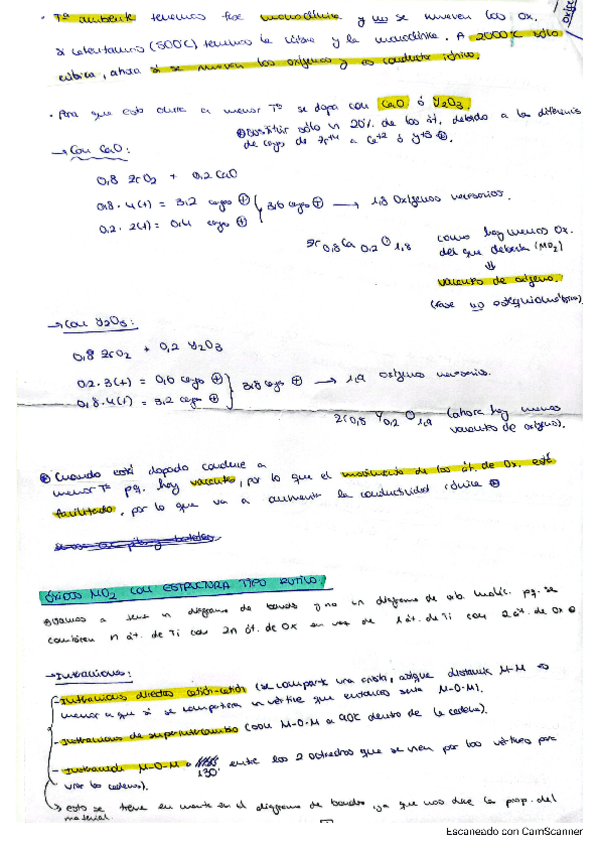 · Tª ambiente tenemos fase monoclínica y no se mueven los ox.
si calentamos (500°C) tenemos la cúbica y la monoclínica. A 2000°C sólo
cúbica, ahora si se mueven los oxígenos y es conductor iónico.
· Para que esto ocurra a menor Tª se dopa con CaO ó Y2O3.
sustituir sólo 20% de los át. debido a la diferencia
de carga de Zr+4 a Ca+2 ó Y+3
→ Con CaO:
0,8 ZrO2 + 0,2 CaO
0,8 · 4(+) = 3,2 cargas ⊕
0,2 · 2(+) = 0,4 cargas ⊕
3,6 cargas ⊕ → 1,8 oxígenos necesarios.
Zr0,8 Ca0,2 O1,8
como hay menos Ox.
del que debería (MO2)
⇓
vacantes de oxígeno.
(fase no estequiométrica)
→ Con Y2O3:
0,8 ZrO2 + 0,2 Y2O3
0,2 · 3(+) = 0,6 cargas ⊕
0,8 · 4(+) = 3,2 cargas ⊕
3,8 cargas ⊕ → 1,9 oxígenos necesarios.
Zr0,8 Y0,2 O1,9
(ahora hay menos
vacantes de oxígeno).
Cuando está dopado conduce a
menor Tª pq. hay vacantes, por lo que el movimiento de los át. de Ox. está
facilitado, por lo que va a aumentar la conductividad iónica
ÓXIDOS MO2 CON ESTRUCTURA TIPO RUTILO.
Vamos a tener un diagrama de bandas y no un diagrama de orb. molec. pq. se
combinan n át. de Ti con 2n át. de Ox en vez de 1 át. de Ti con 2 át. de O
→ Interacciones:
- Interacciones directas catión-catión (se comparte una arista, distancia M-M es
menor a que si se compartiera un vértice que entonces sería M-O-M).
- Interacciones de superintercambio (con M-O-M a 90° dentro de la cadena).
- Interacción M-O-M a 130° entre los 2 octaedros que se unen por los vértices para
unir las cadenas).
→ esto se tiene en cuenta en el diagrama de bandas ya que nos dice las prop. del
material.
Escaneado con CamScanner